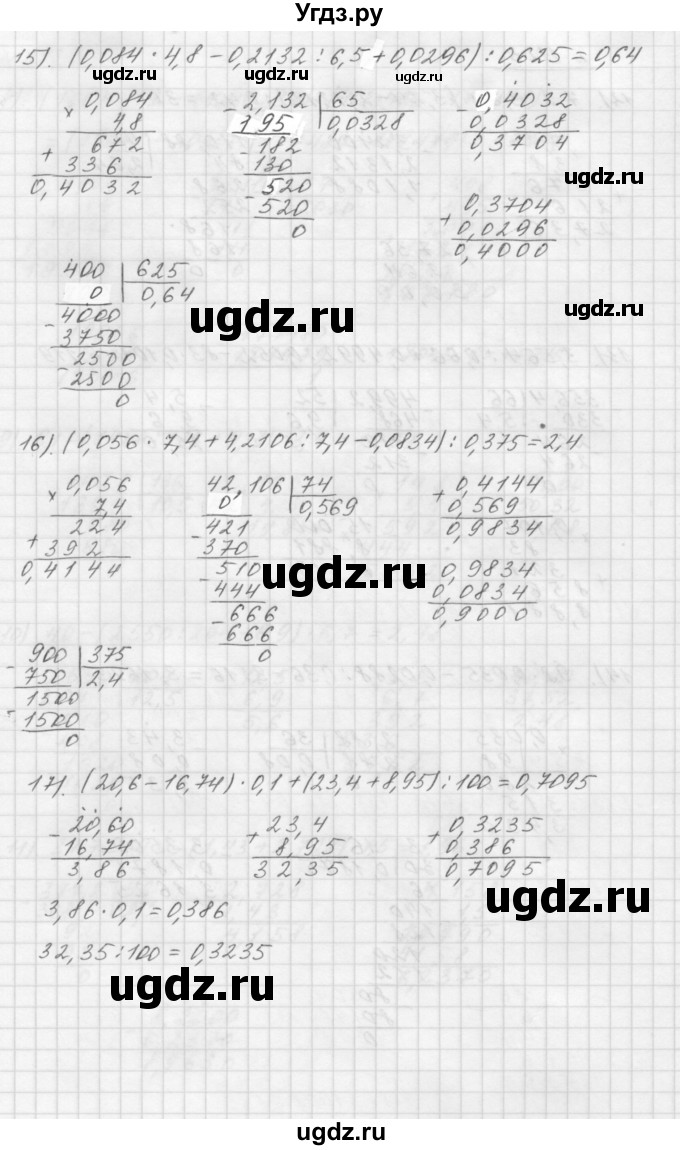 Угдз.ру
15). (0,084 · 4,8 - 0,2132 : 6,5 + 0,0296) : 0,625 = 0,64
ugdz.ru ugdz.ru ugdz.ru
× 0,084
4,8
672
+ 336
0,4032
- 2,132 | 65
195 0,0328
- 182
130
- 520
520
0
- 0,4032
0,0328
0,3704
ugdz.ru
+ 0,3704
0,0296
0,4000
400 | 625
0 0,64
- 4000
3750
- 2500
2500
0
ugdz.ru
ugdz.ru
16). (0,056 · 7,4 + 4,2106 : 7,4 - 0,0834) : 0,375 = 2,4
× 0,056
7,4
224
+ 392
0,4144
42,106 | 74
0 0,569
- 421
370
- 510
444
- 666
666
0
+ 0,4144
0,569
0,9834
ugdz.ru
- 0,9834
0,0834
0,9000
- 900 | 375
750 2,4
- 1500
1500
0
ugdz.ru
17). (20,6 - 16,74) · 0,1 + (23,4 + 8,95) : 100 = 0,7095
- 20,60
16,74
3,86
+ 23,4
8,95
32,35
+ 0,3235
0,386
0,7095
ugdz.ru
3,86 · 0,1 = 0,386
32,35 : 100 = 0,3235
ugdz.ru
ugdz.ru